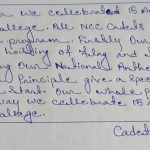 we celebrated 15 A
college. All NCC Cadets
program. Firstly Our
holding of flag and
ng Our National Anthe
Principle give a Spec
Start. Our whole p
way we celebrate 15 a
college.
Cadet